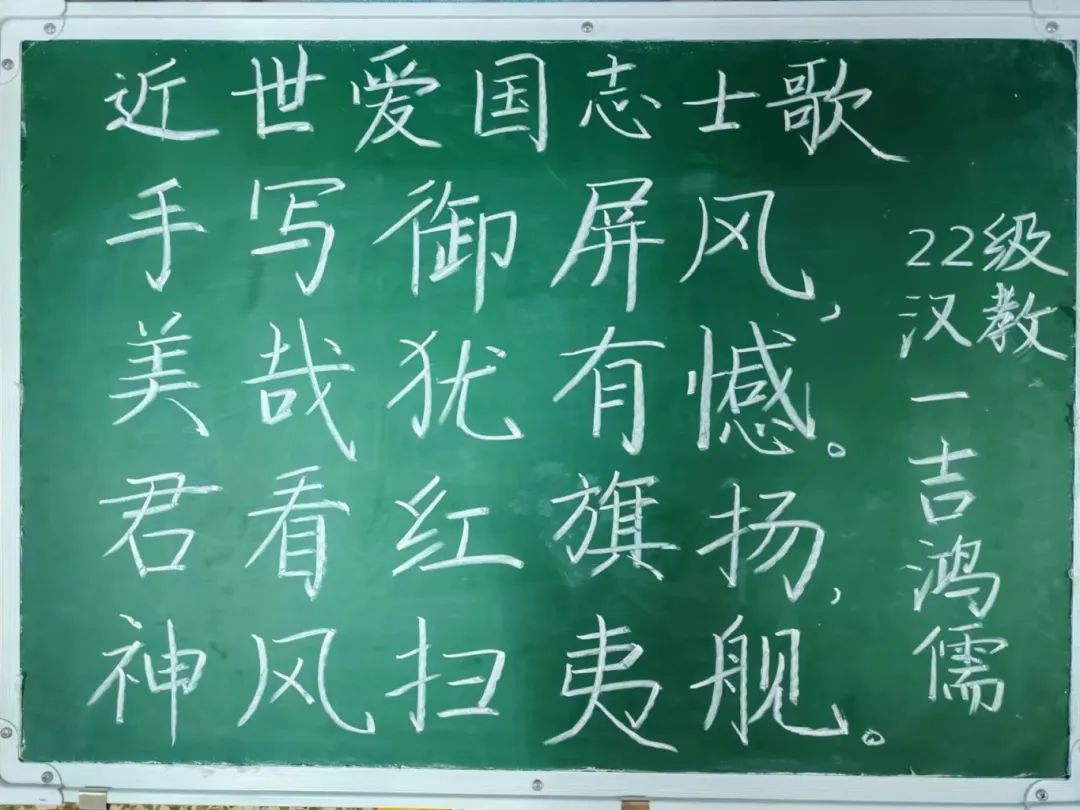 近世爱国志士歌
手写御屏风，
美哉犹有憾。
君看红旗扬，
神风扫夷舰。
22级
汉教
一
吉
鸿
儒